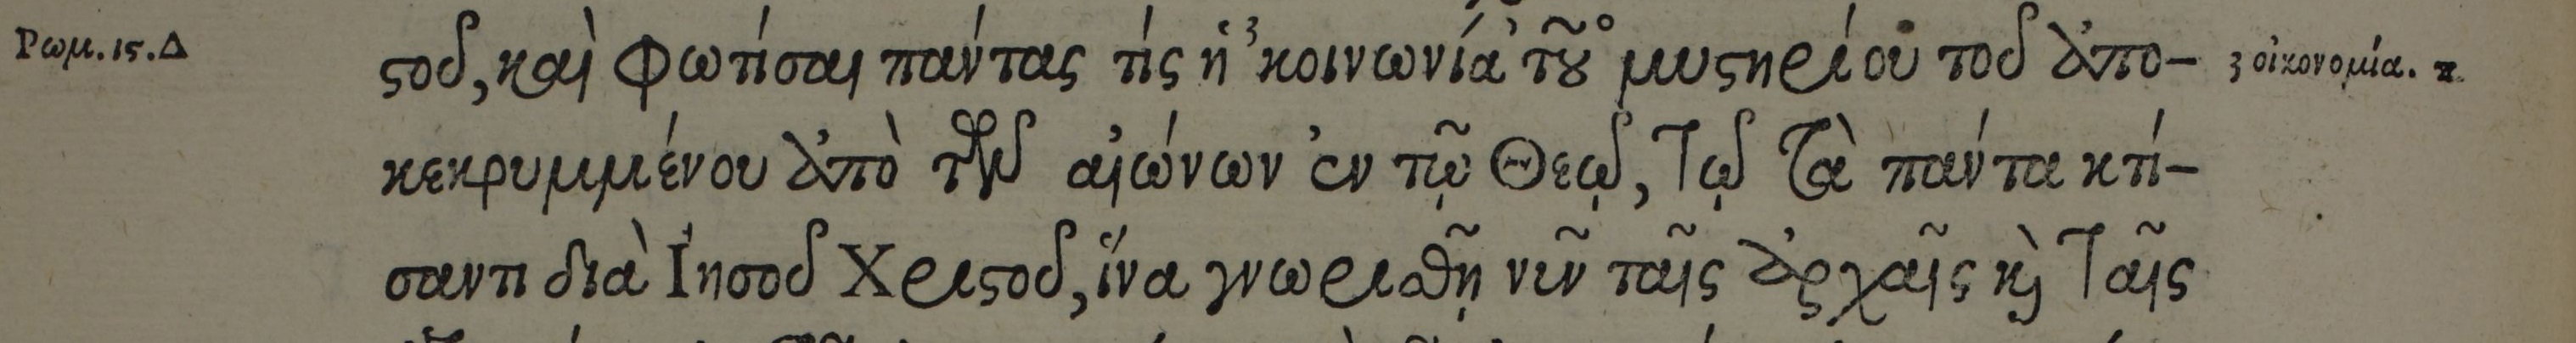 Ρωμ. 15. Δ
στοῦ, καὶ φωτίσαι πάντας τίς ἡ ³κοινωνία τοῦ μυστηρίου τοῦ ἀπο-
3 οἰκονομία. π.
κεκρυμμένου ἀπὸ τῶν αἰώνων ἐν τῷ Θεῷ, τῷ τὰ πάντα κτί-
σαντι διὰ Ἰησοῦ Χριστοῦ, ἵνα γνωρισθῇ νῦν ταῖς ἀρχαῖς καὶ ταῖς